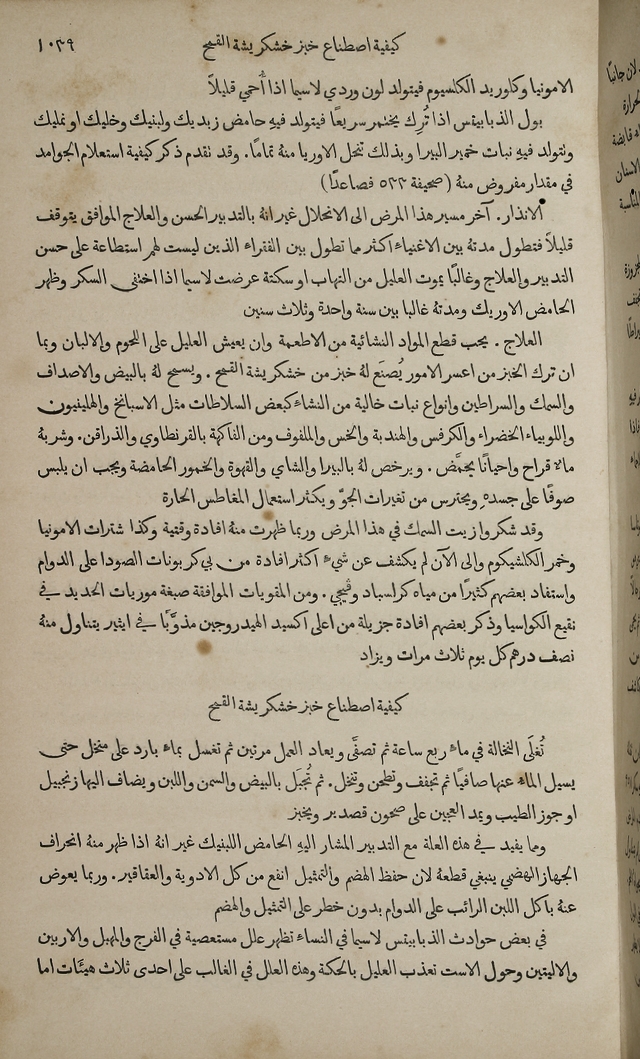 كيفية اصطناع خبز خشكريشة القمح ١٠٣٩
الامونيا وكلوريد الكلسيوم فيتولد لون وردي لاسيما اذا أُحمي قليلاً
بول الذيابيتس اذا تُرك يختمر سريعًا فيتولد فيهِ حامض زبديك ولبنيك وخليك او نمليك
ونتولد فيهِ نبات خمير البيرا وبذلك تنحل الاوريا منهُ تمامًا. وقد تقدم ذكر كيفية استعلام الجوامد
في مقدار مفروض منهُ (صحيفة ٥٣٣ فصاعدًا)
الانذار. آخر مسير هذا المرض الى الانحلال غير انهُ بالتدبير الحسن والعلاج الموافق يتوقف
قليلاً فتطول مدتهُ بين الاغنياء اكثر مما تطول بين الفقراء الذين ليست لهم استطاعة على حسن
التدبير والعلاج وغالبًا يموت العليل من التهاب او سكتة عرضت لاسيما اذا اختفى السكر وظهر
الحامض الاوريك ومدتهُ غالبا بين سنة واحدة وثلاث سنين
العلاج. يجب قطع المواد النشائية من الاطعمة وان يعيش العليل على اللحوم والالبان وبما
ان ترك الخبز من اعسر الامور يُصنَع لهُ خبز من خشكريشة القمح. ويسمح لهُ بالبيض والاصداف
والسمك والسراطين وانواع نبات خالية من النشاء كبعض السلاطات مثل الاسبانخ والهلينيون
واللوبياء الخضراء والكرفس والهندبة والخس والملفوف ومن الفاكهة بالقرنطاوي والذراقن. وشربهُ
ماء قراح واحيانًا يحمَّض. ويرخص لهُ بالبيرا والشاي والقهوة والخمور الحامضة ويجب ان يلبس
صوفًا على جسده ويحترس من تغيرات الجوّ ويكثر استعمال المغاطس الحارة
وقد شكروا زيت السمك في هذا المرض وربما ظهرت منهُ افادة وقتية وكذا شترات الامونيا
وخمر الكلشيكوم والى الآن لم يكشف عن شيء اكثر افادة من بي كربونات الصودا على الدوام
واستفاد بعضهم كثيرًا من مياه كراسباد وڤيچي. ومن المقويات الموافقة صبغة موريات الحديد في
نقيع الكواسيا وذكر بعضهم افادة جزيلة من اعلى اكسيد الهيدروجين مذوَّبًا في ايثير يتناول منهُ
نصف درهم كل يوم ثلاث مرات ويزاد
كيفية اصطناع خبز خشكريشة القمح
تُغلَى النخالة في ماء ربع ساعة ثم تصفَّى ويعاد العمل مرتين ثم تغسل بماء بارد على منخل حتى
يسيل الماء عنها صافيًا ثم تجفف وتطحن وتنخل. ثم تُجبَل بالبيض والسمن واللبن ويضاف اليها زنجبيل
او جوز الطيب ويمد العجين على صحون قصدير ويخبز
ومما يفيد في هذه العلة مع التدبير المشار اليهِ الحامض اللبنيك غير انهُ اذا ظهر منهُ انحراف
الجهاز الهضمي ينبغي قطعهُ لان حفظ الهضم والتمثيل انفع من كل الادوية والعقاقير. وربما يعوض
عنهُ بأكل اللبن الرائب على الدوام بدون خطر على التمثيل والهضم
في بعض حوادث الذيابيتس لاسيما في النساء تظهر علل مستعصية في الفرج والمهبل والاربين
والاليتين وحول الاست تعذب العليل بالحكة وهذه العلل في الغالب على احدى ثلاث هيئات اما